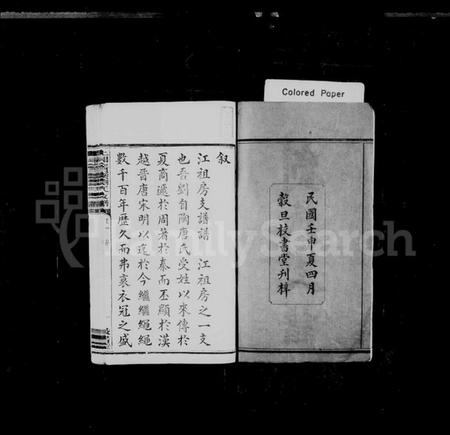 Colored Paper
民國壬申夏四月
穀旦校書堂刋梓
叙
江祖房支譜譜 江祖房之一支
也吾劉自陶唐氏受姓以來傳於
夏商遞於周著於秦而丕顯於漢
越晉唐宋明以迄於今繼繼繩繩
數千百年歷久而弗衰衣冠之盛
FamilySearch